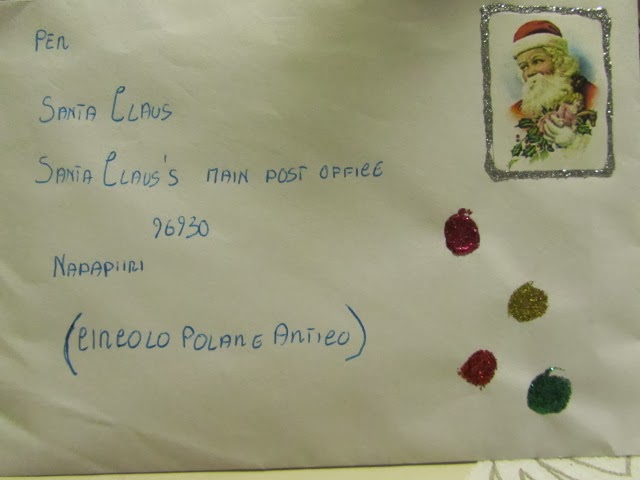 PER
SANTA CLAUS
SANTA CLAUS'S MAIN POST OFFICE
96930
NAPAPIIRI
(CIRCOLO POLARE ARTICO)